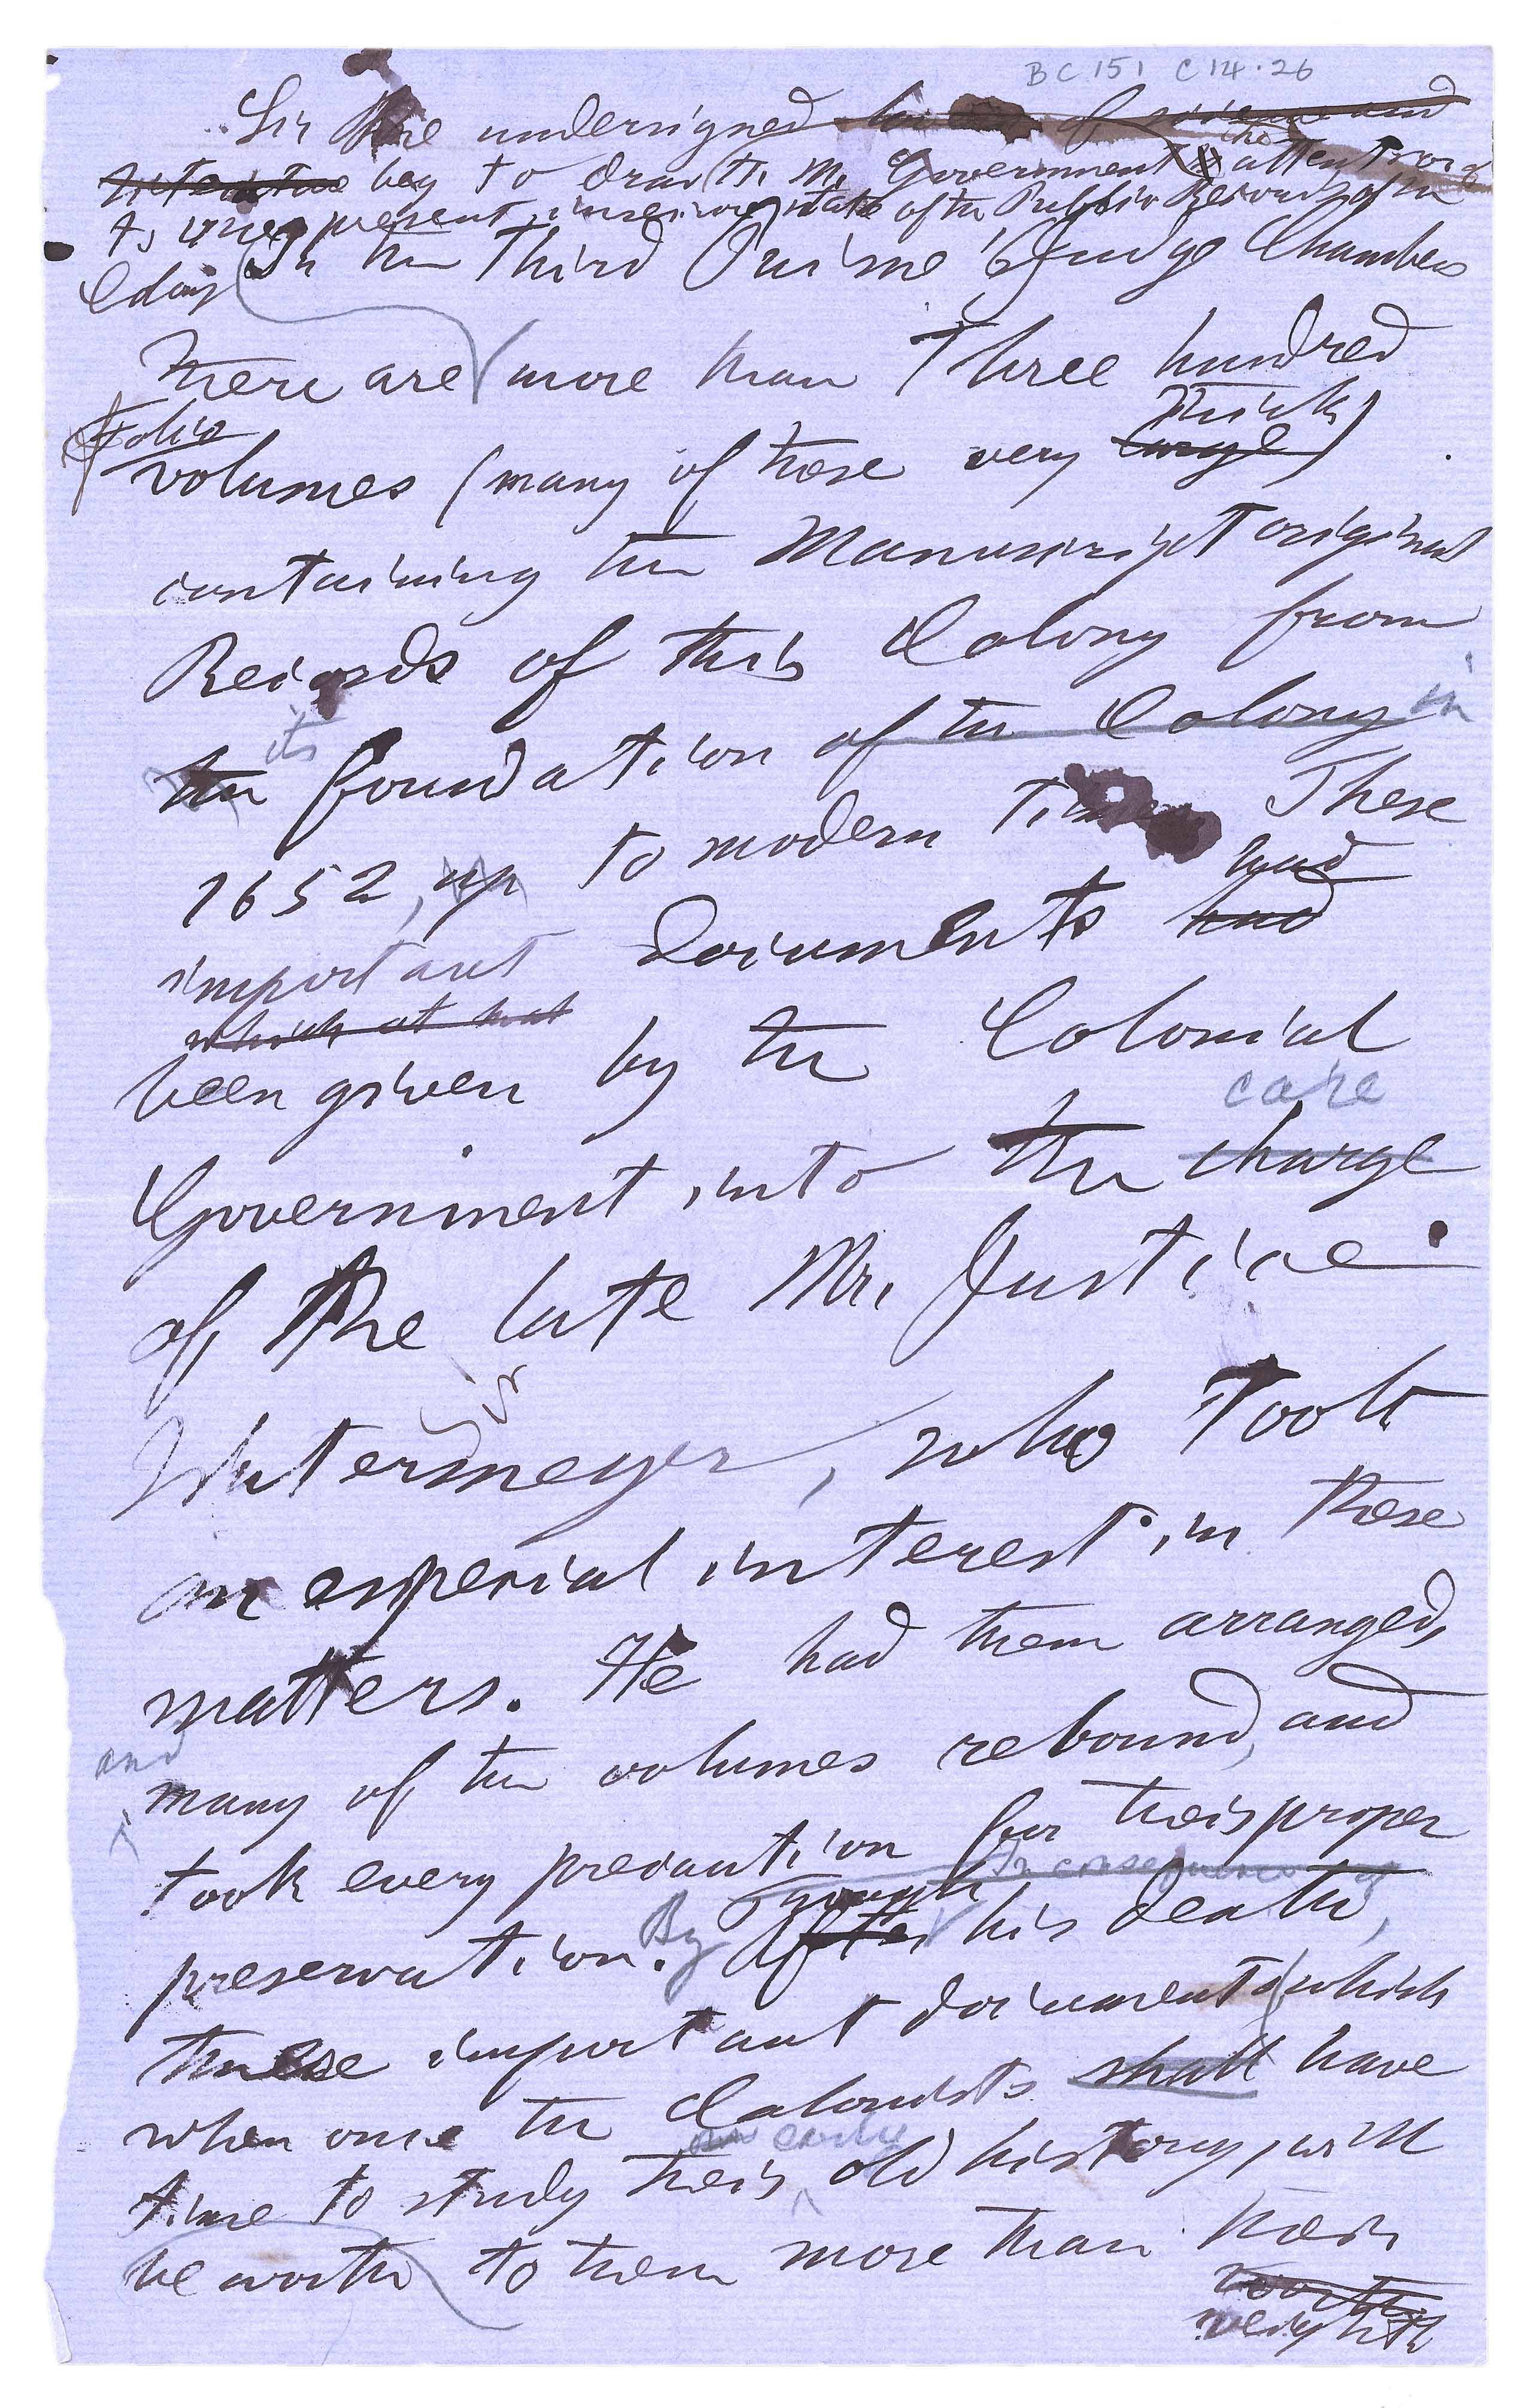 BC 151 C 14.26
Sir The undersigned lovers of science and the
literature beg to draw the Government's attention
to the present insecure state of the Public Records of the
Colony In the Third Puisne Judge Chambers
there are more than Three hundred
Folio thick
volumes (many of these very large)
containing the Manuscript original
Records of this Colony from
its
the foundation of the Colony in
1652, up to modern Times These
had
important documents had
which at that
been given by the Colonial
care
Government into the charge
of the late Mr. Justice
Watermeyer, who took
an especial interest in these
matters. He had them arranged,
and
many of the volumes rebound, and
took every precaution for their proper
In consequence of
through
preservation. By After his death,
these important documents which
when once the Colonists shall have
early
time to study their old history, will
be worth to them more than their
worth
weight